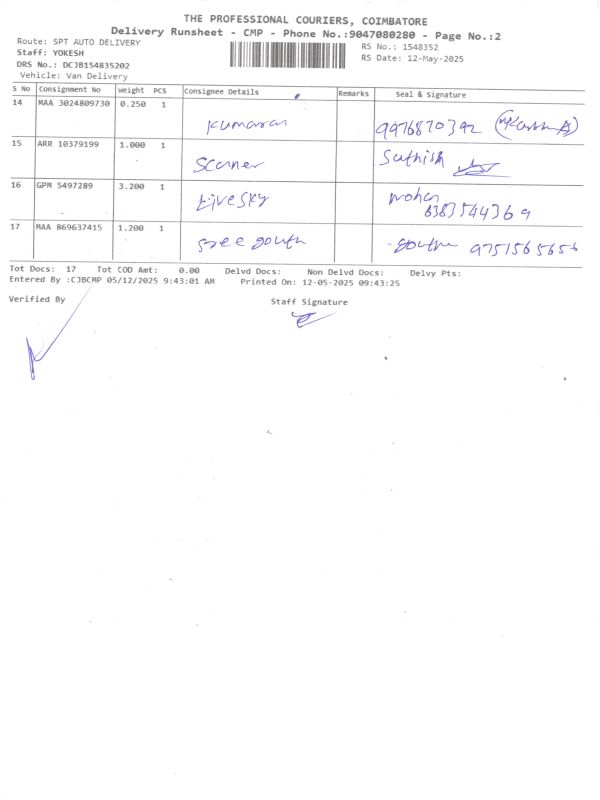 THE PROFESSIONAL COURIERS, COIMBATORE
Delivery Runsheet - CMP - Phone No.:9047080280 - Page No.:2
Route: SPT AUTO DELIVERY
RS No.: 1548352
Staff: YOKESH
RS Date: 12-May-2025
DRS No.: DCJB154835202
Vehicle: Van Delivery
S No Consignment No Weight PCS Consignee Details Remarks Seal & Signature
14 MAA 3024809730 0.250 1
Kumaran 9976870392
15 ARR 10379199 1.000 1
Scanner Suthish
16 GPM 5497289 3.200 1
mohan
6383544369
17 MAA 869637415 1.200 1
Sree gouth gouth 9751565656
Tot Docs: 17 Tot COD Amt: 0.00 Delvd Docs: Non Delvd Docs: Delvy Pts:
Entered By :CJBCMP 05/12/2025 9:43:01 AM Printed On: 12-05-2025 09:43:25
Verified By
Staff Signature